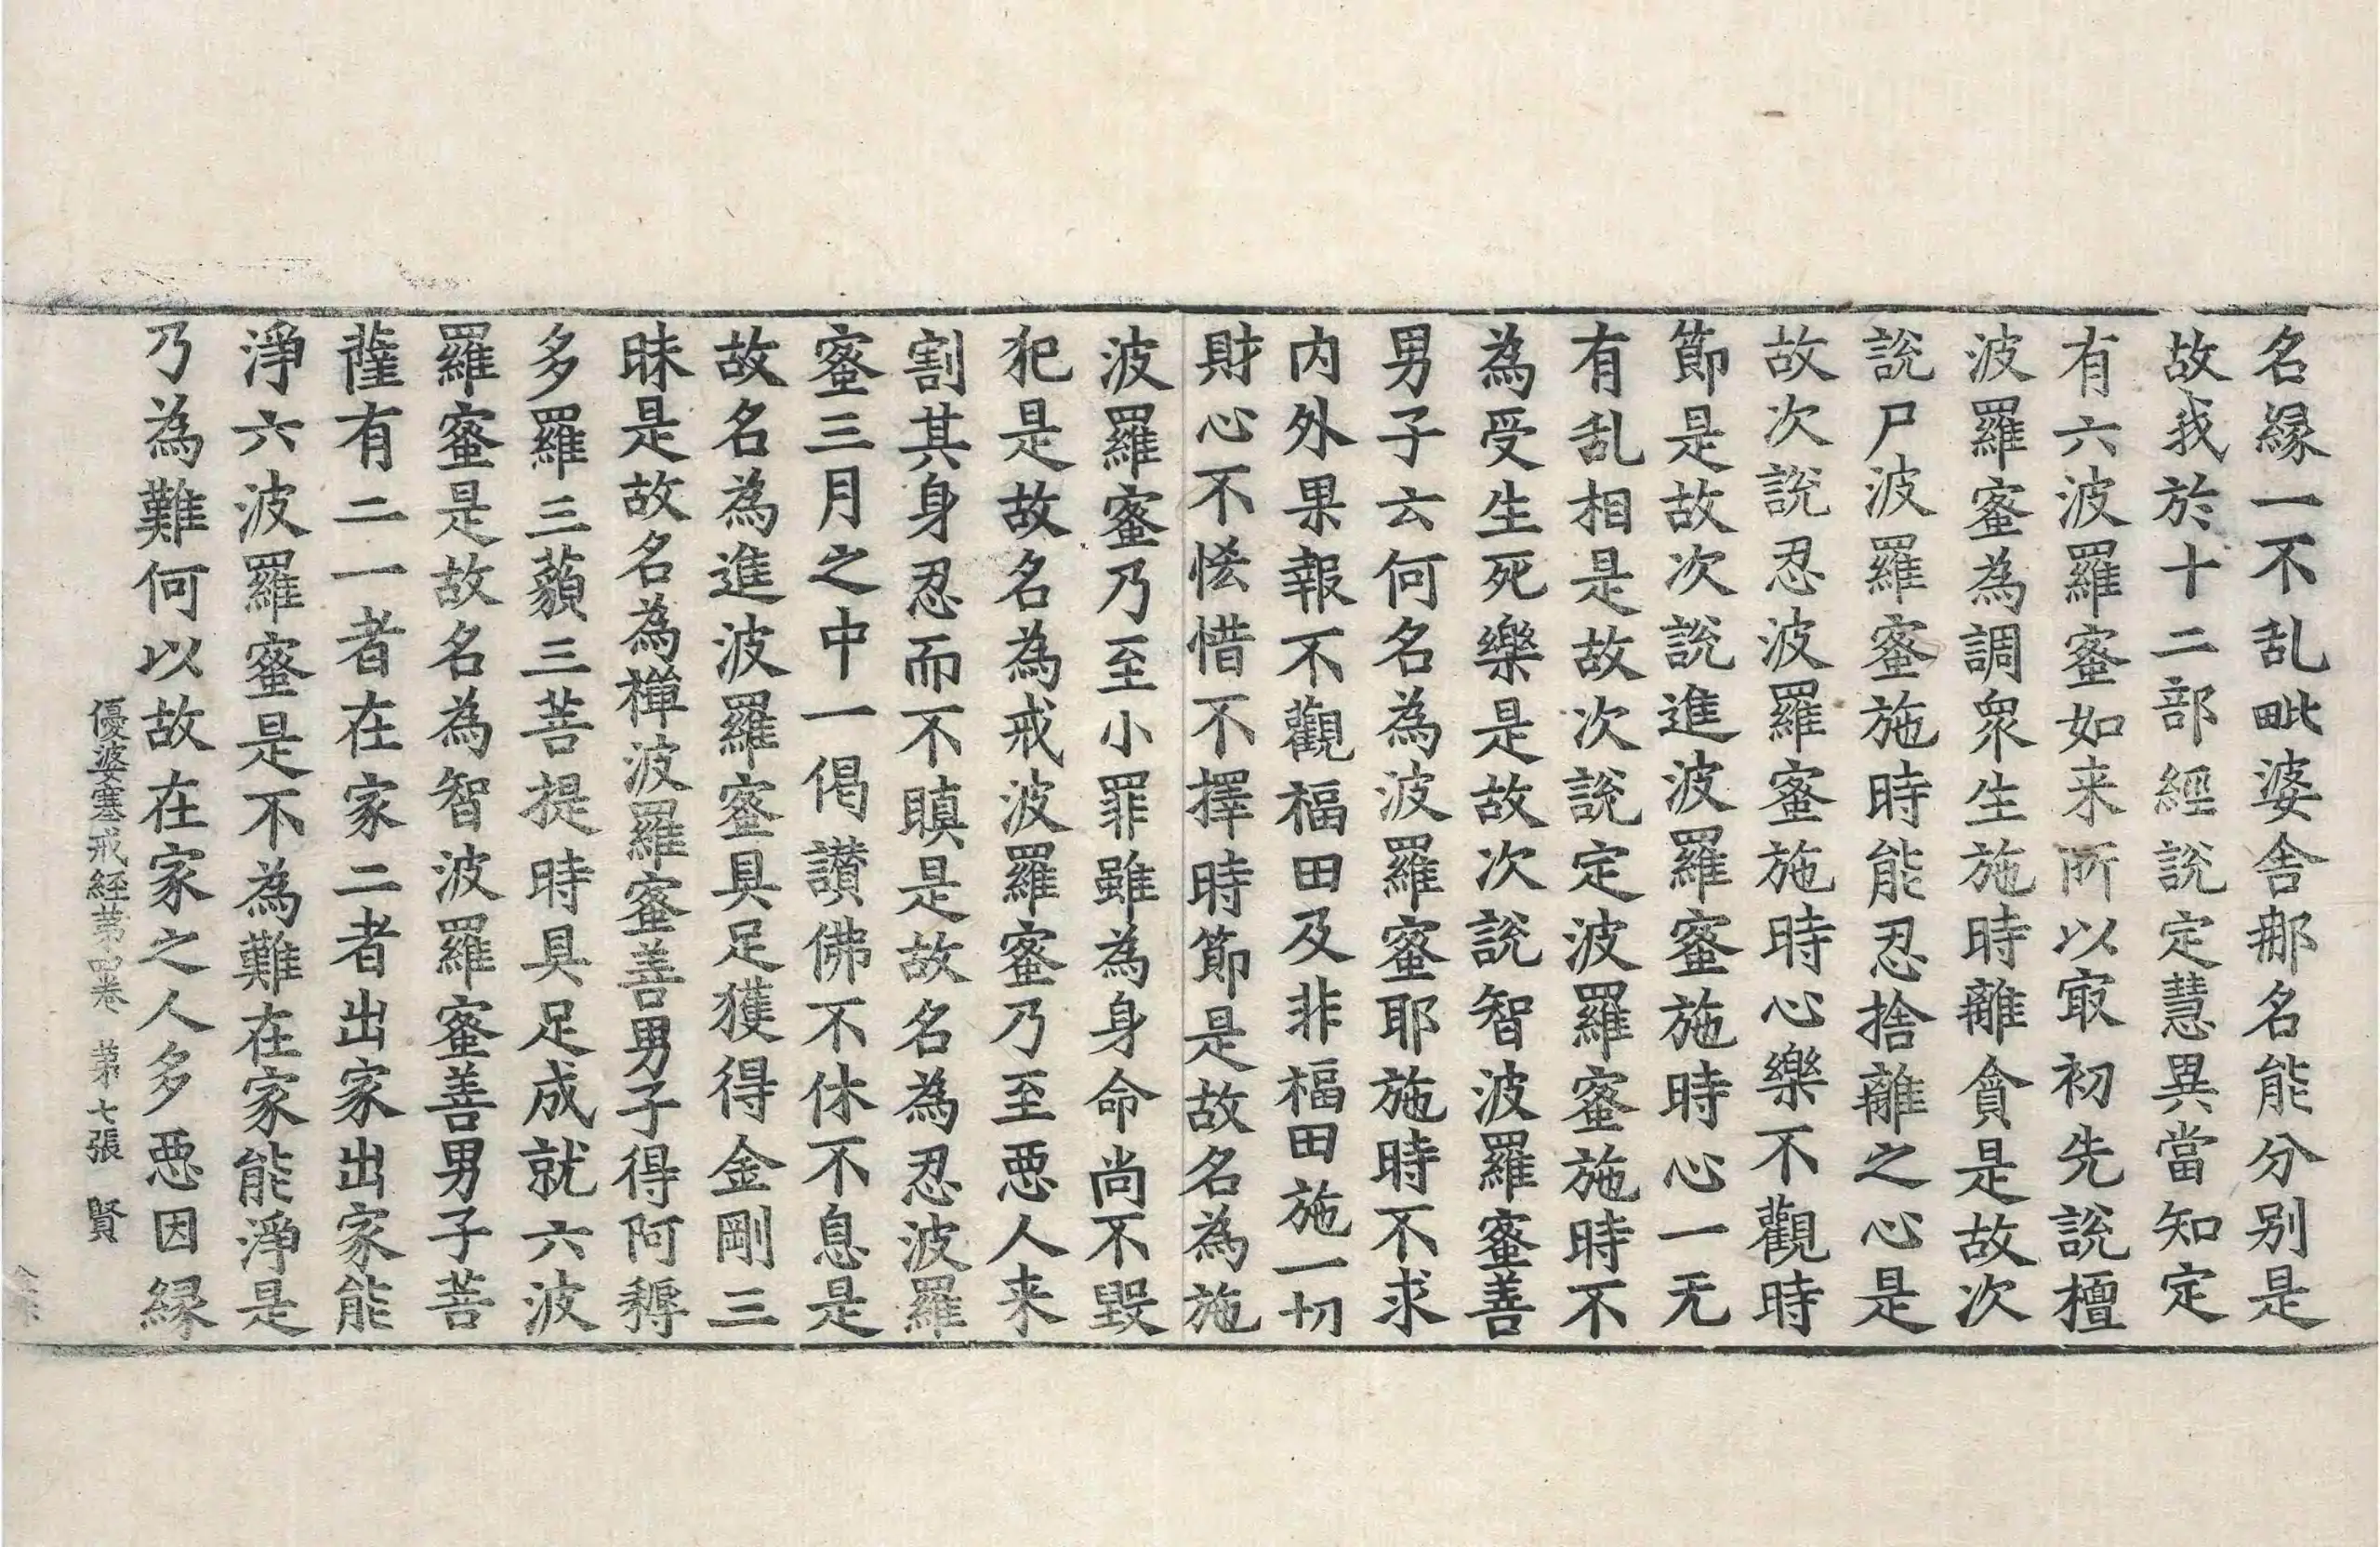 名縁一不乱毗婆舎𨚗名能分別是
故我於十二部經說定慧異當知定
有六波羅蜜如来所以㝡初先說檀
波羅蜜為調衆生施時離貪是故次
說尸波羅蜜施時能忍捨離之心是
故次說忍波羅蜜施時心樂不觀時
節是故次說進波羅蜜施時心一无
有乱相是故次說定波羅蜜施時不
為受生死樂是故次說智波羅蜜善
男子云何名為波羅蜜耶施時不求
内外果報不觀福田及非福田施一切
財心不悋惜不擇時節是故名為施
波羅蜜乃至小罪雖為身命尚不毀
犯是故名為戒波羅蜜乃至悪人来
割其身忍而不瞋是故名為忍波羅
蜜三月之中一偈讃佛不休不息是
故名為進波羅蜜具足獲得金剛三
昧是故名為禅波羅蜜善男子得阿耨
多羅三藐三菩提時具足成就六波
羅蜜是故名為智波羅蜜善男子菩
薩有二一者在家二者出家出家能
淨六波羅蜜是不為難在家能淨是
乃為難何以故在家之人多悪因縁
優婆塞戒經苐四卷　苐七張　賢